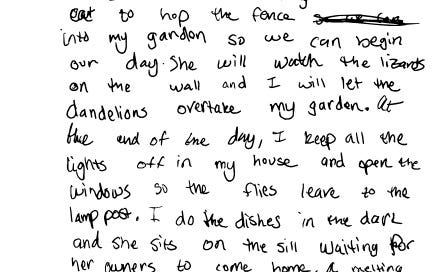 cat to hop the fence
into my garden so we can begin
our day. She will watch the lizards
on the wall and I will let the
dandelions overtake my garden. At
the end of the day, I keep all the
lights off in my house and open the
windows so the flies leave to the
lamp post. I do the dishes in the dark
and she sits on the sill waiting for
her owners to come home. A melting